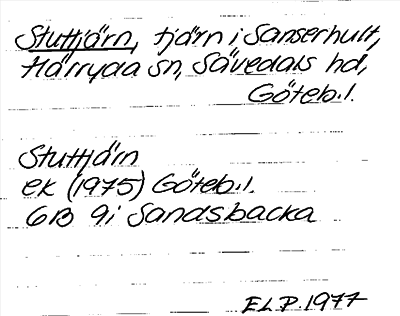 Stuttjärn, tjärn i Sanserhult,
Härryda sn, Sävedals hd,
Göteb.l.
Stuttjärn
ek (1975) Göteb.l.
6B 9i Sandsbacka
E.L.P. 1977